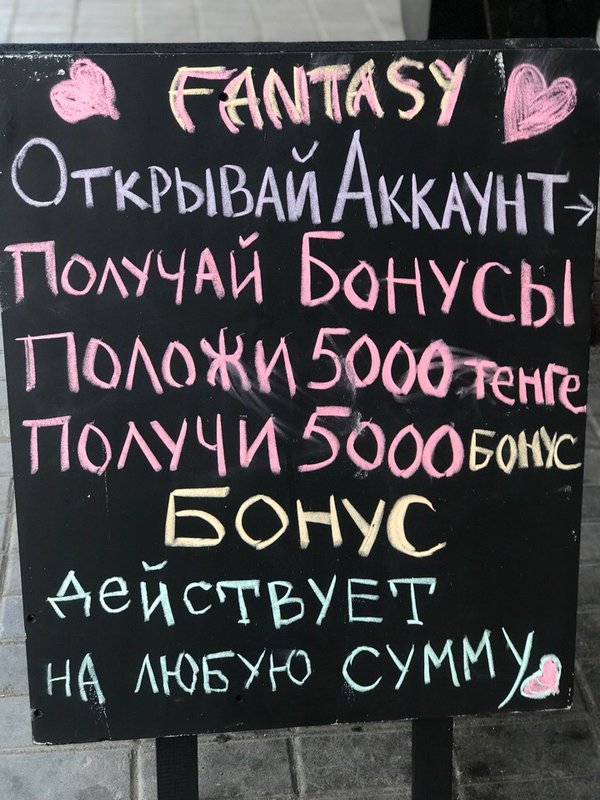 FANTASY
Открывай Аккаунт →
Получай Бонусы
Положи 5000 тенге
Получи 5000 бонус
Бонус
действует
на любую сумму